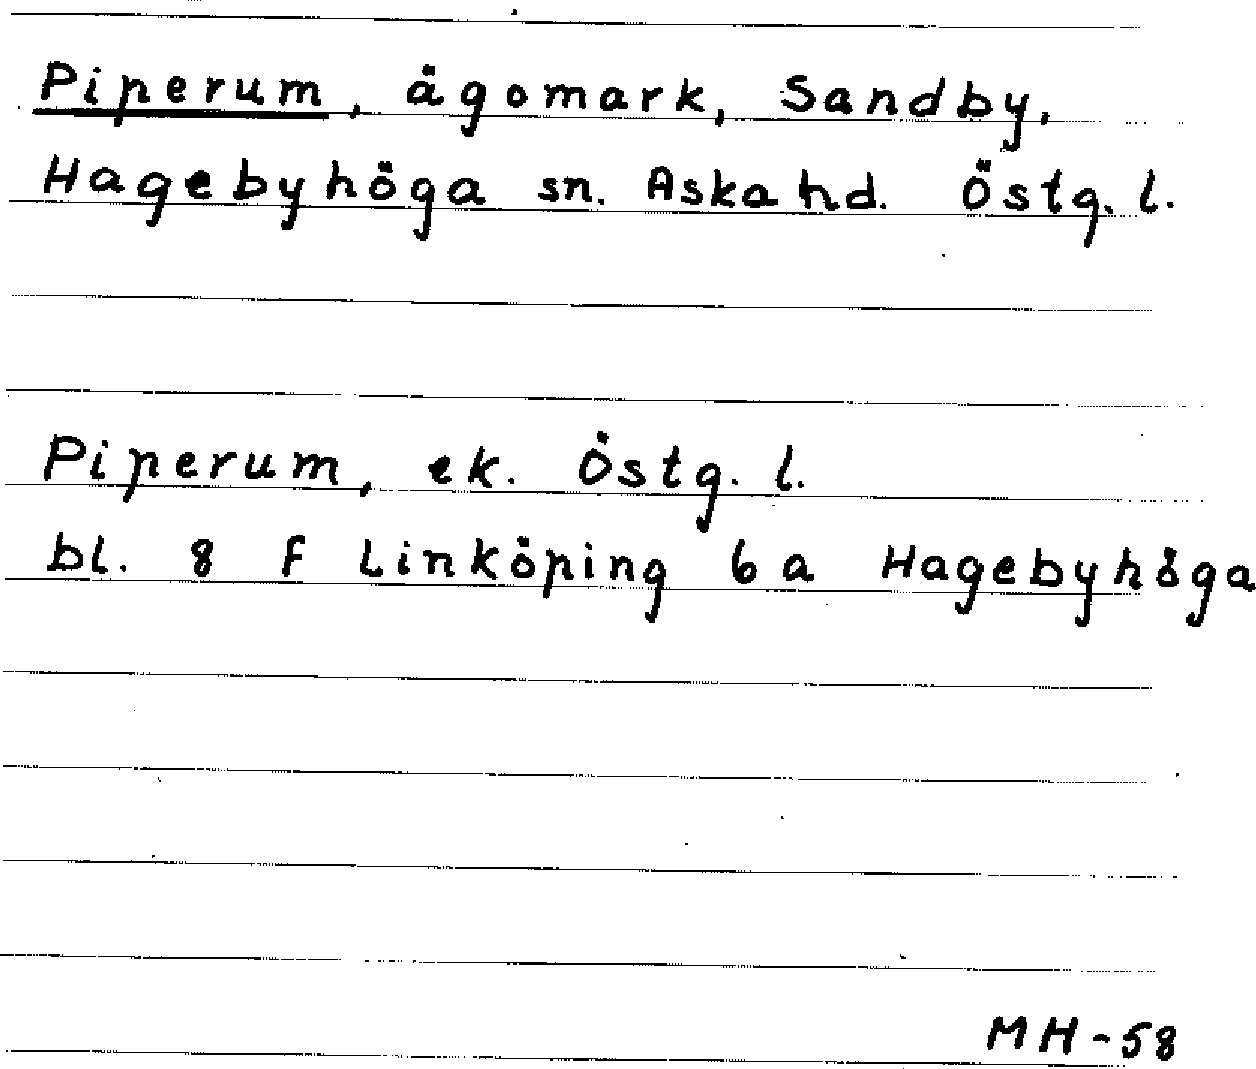 Piperum, ägomark, Sandby,
Hagebyhöga sn. Aska hd. Östg. l.
Piperum, ek. Östg. l.
bl. 8 F Linköping 6 a Hagebyhöga
MH-58